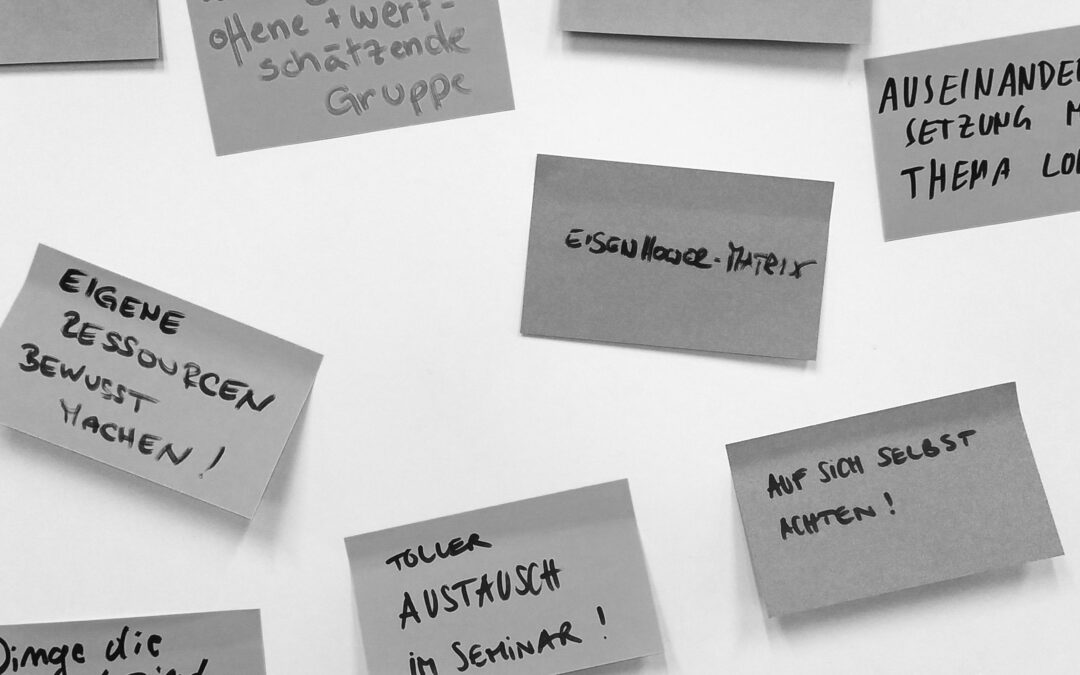 offene + wert-
schätzende
Gruppe
AUSEINANDER
SETZUNG
THEMA
EISENHOWER-MATRIX
EIGENE
RESSOURCEN
BEWUSST
MACHEN!
AUF SICH SELBST
ACHTEN!
TOLLER
AUSTAUSCH
IM SEMINAR!
Dinge die